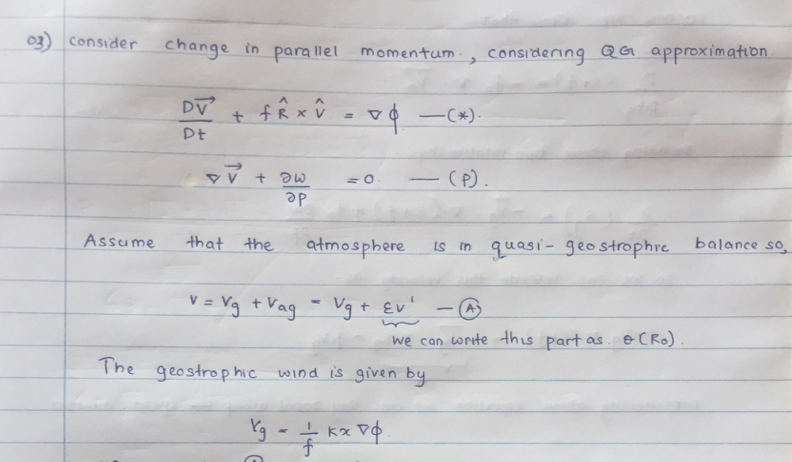 03) consider change in parallel momentum., considering QG approximation
DV⃗/Dt + f k̂ × v̂ = ∇ϕ —(*).
∇V⃗ + ∂w/∂p = 0 — (P).
Assume that the atmosphere is in quasi-geostrophic balance so,
V = Vg + Vag = Vg + εv' — Ⓐ
we can write this part as. θ(Ro).
The geostrophic wind is given by
Vg = 1/f k×∇ϕ